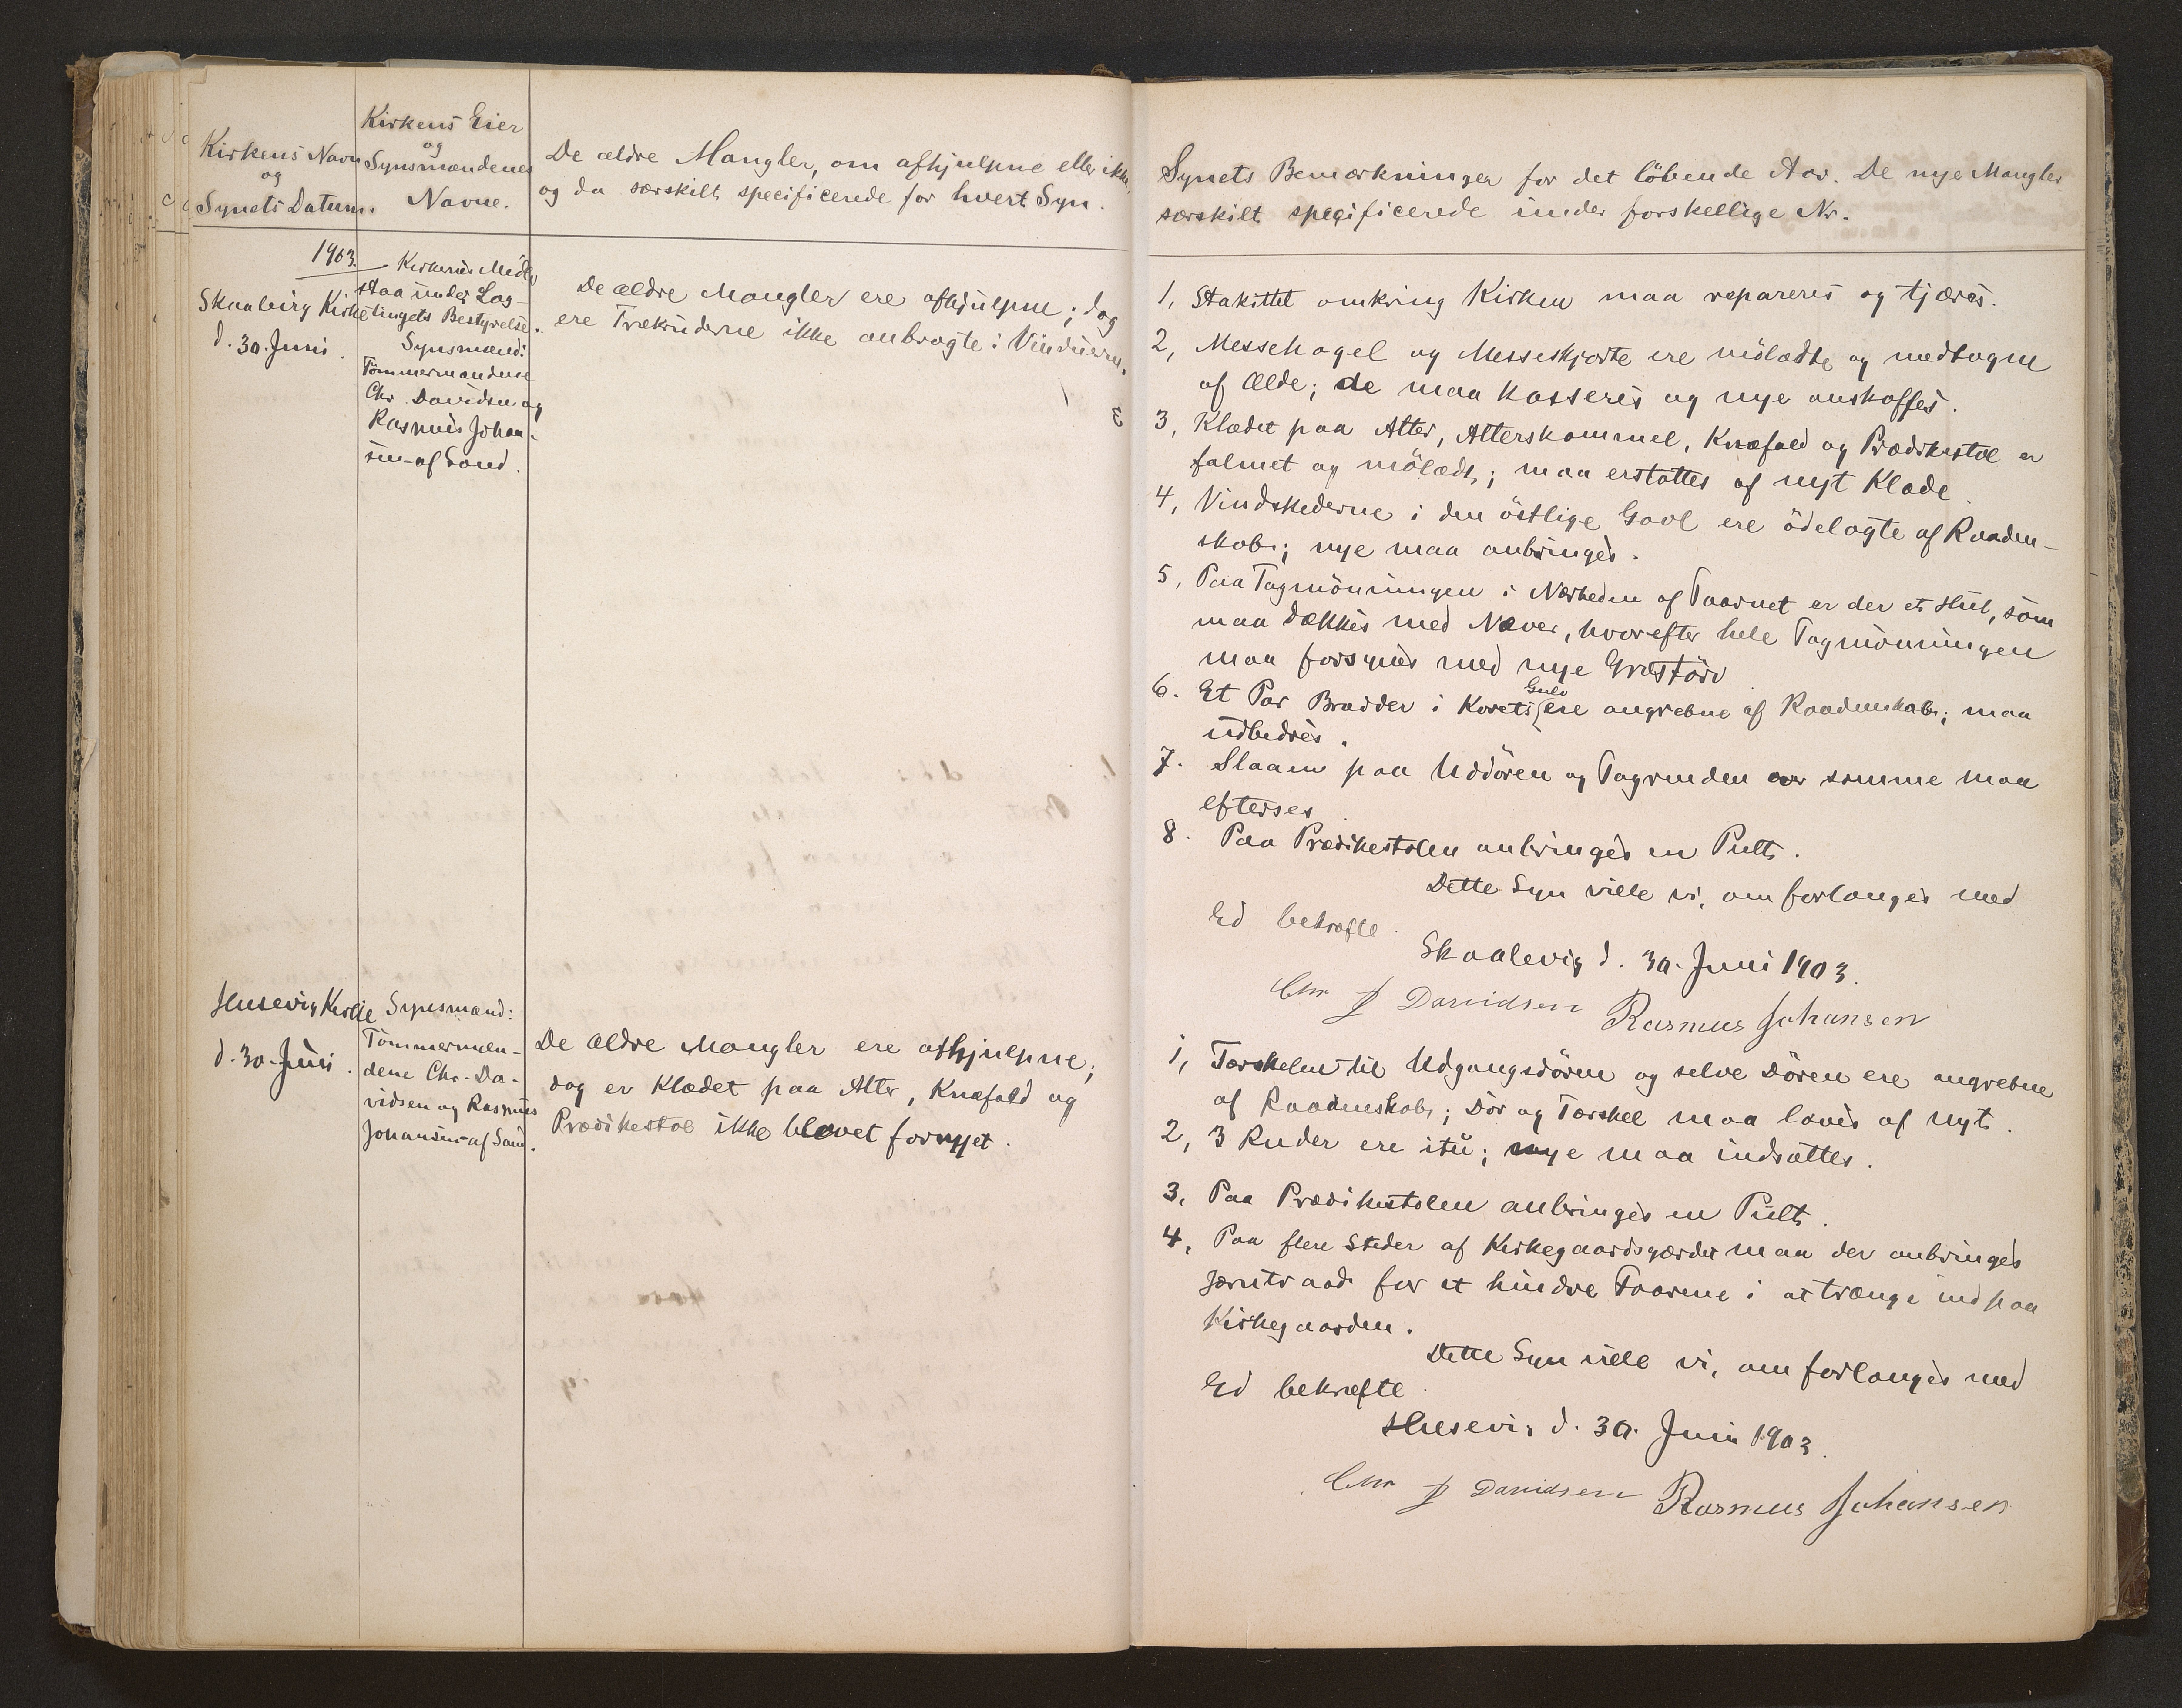 Kirkens Navn
og
Synets Datum.
Kirkens Eier
og
Synsmændenes
Navne.
De ældre Mangler, om afhjulpne eller ikke,
og da særskilt specificerede for hvert Syn.
1903.
Skaalevig Kirke
d. 30. Juni.
Kirkerne Midler
staa under Lag-
tingets Bestyrelse.
Synsmænd:
Tømmermændene
Chr. Davidsen og
Rasmus Johan-
sen af Sand.
De ældre Mangler ere afhjulpne; dog
ere Trækruderne ikke anbragte i Vinduerne.
Husevig Kirke
d. 30. Juni.
Synsmænd:
Tømmermæn-
dene Chr. Da-
vidsen og Rasmus
Johansen af Sand.
De ældre Mangler ere afhjulpne;
dog er Klædet paa Alter, Knæfald og
Prædikestol ikke blevet fornyet.
Synets Bemærkninger for det löbende Aar. De nye Mangler
særskilt specificerede under forskellige Nr.
1, Stakittet omkring Kirken maa repareres og tjæres.
2, Messehagel og Messeskjorte ere mölædte og medtagne
af Ælde; de maa kasseres og nye anskaffes.
3, Klædet paa Alter, Alterskammel, Knæfald og Prædikestol er
falmet og mölædt; maa erstattes af nyt Klæde.
4, Vindskederne i den östlige Gavl ere ödelagte af Raaden-
skab; nye maa anbringes.
5, Paa Tagmönningen i Nærheden af Taarnet er der et Hul, som
maa dækkes med Næver, hvorefter hele Tagmönningen
maa forsynes med nye Græstörv
6. Et Par Brædder i Korets Gulv ere angrebne af Raadenskab; maa
udbedres.
7. Slaaen paa Uddören og Tagrenden over samme maa
efterses.
8. Paa Prædikestolen anbringes en Pult.
Dette Syn ville vi, om forlanges med
Ed bekræfte.
Skaalevig d. 30. Juni 1903.
Chr J Davidsen Rasmus Johansen
1, Tærskelen til Udgangsdören og selve Dören ere angrebne
af Raadenskab; Dör og Tærskel maa laves af nyt.
2, 3 Ruder ere itu; nye maa indsættes.
3, Paa Prædikestolen anbringes en Pult.
4, Paa flere Steder af Kirkegaardsgærdet maa der anbringes
Jærntraad for at hindre Faarene i at trænge ind paa
Kirkegaarden.
Dette Syn ville vi, om forlanges med
Ed bekræfte
Husevig d. 30. Juni 1903.
Chr J Davidsen Rasmus Johansen